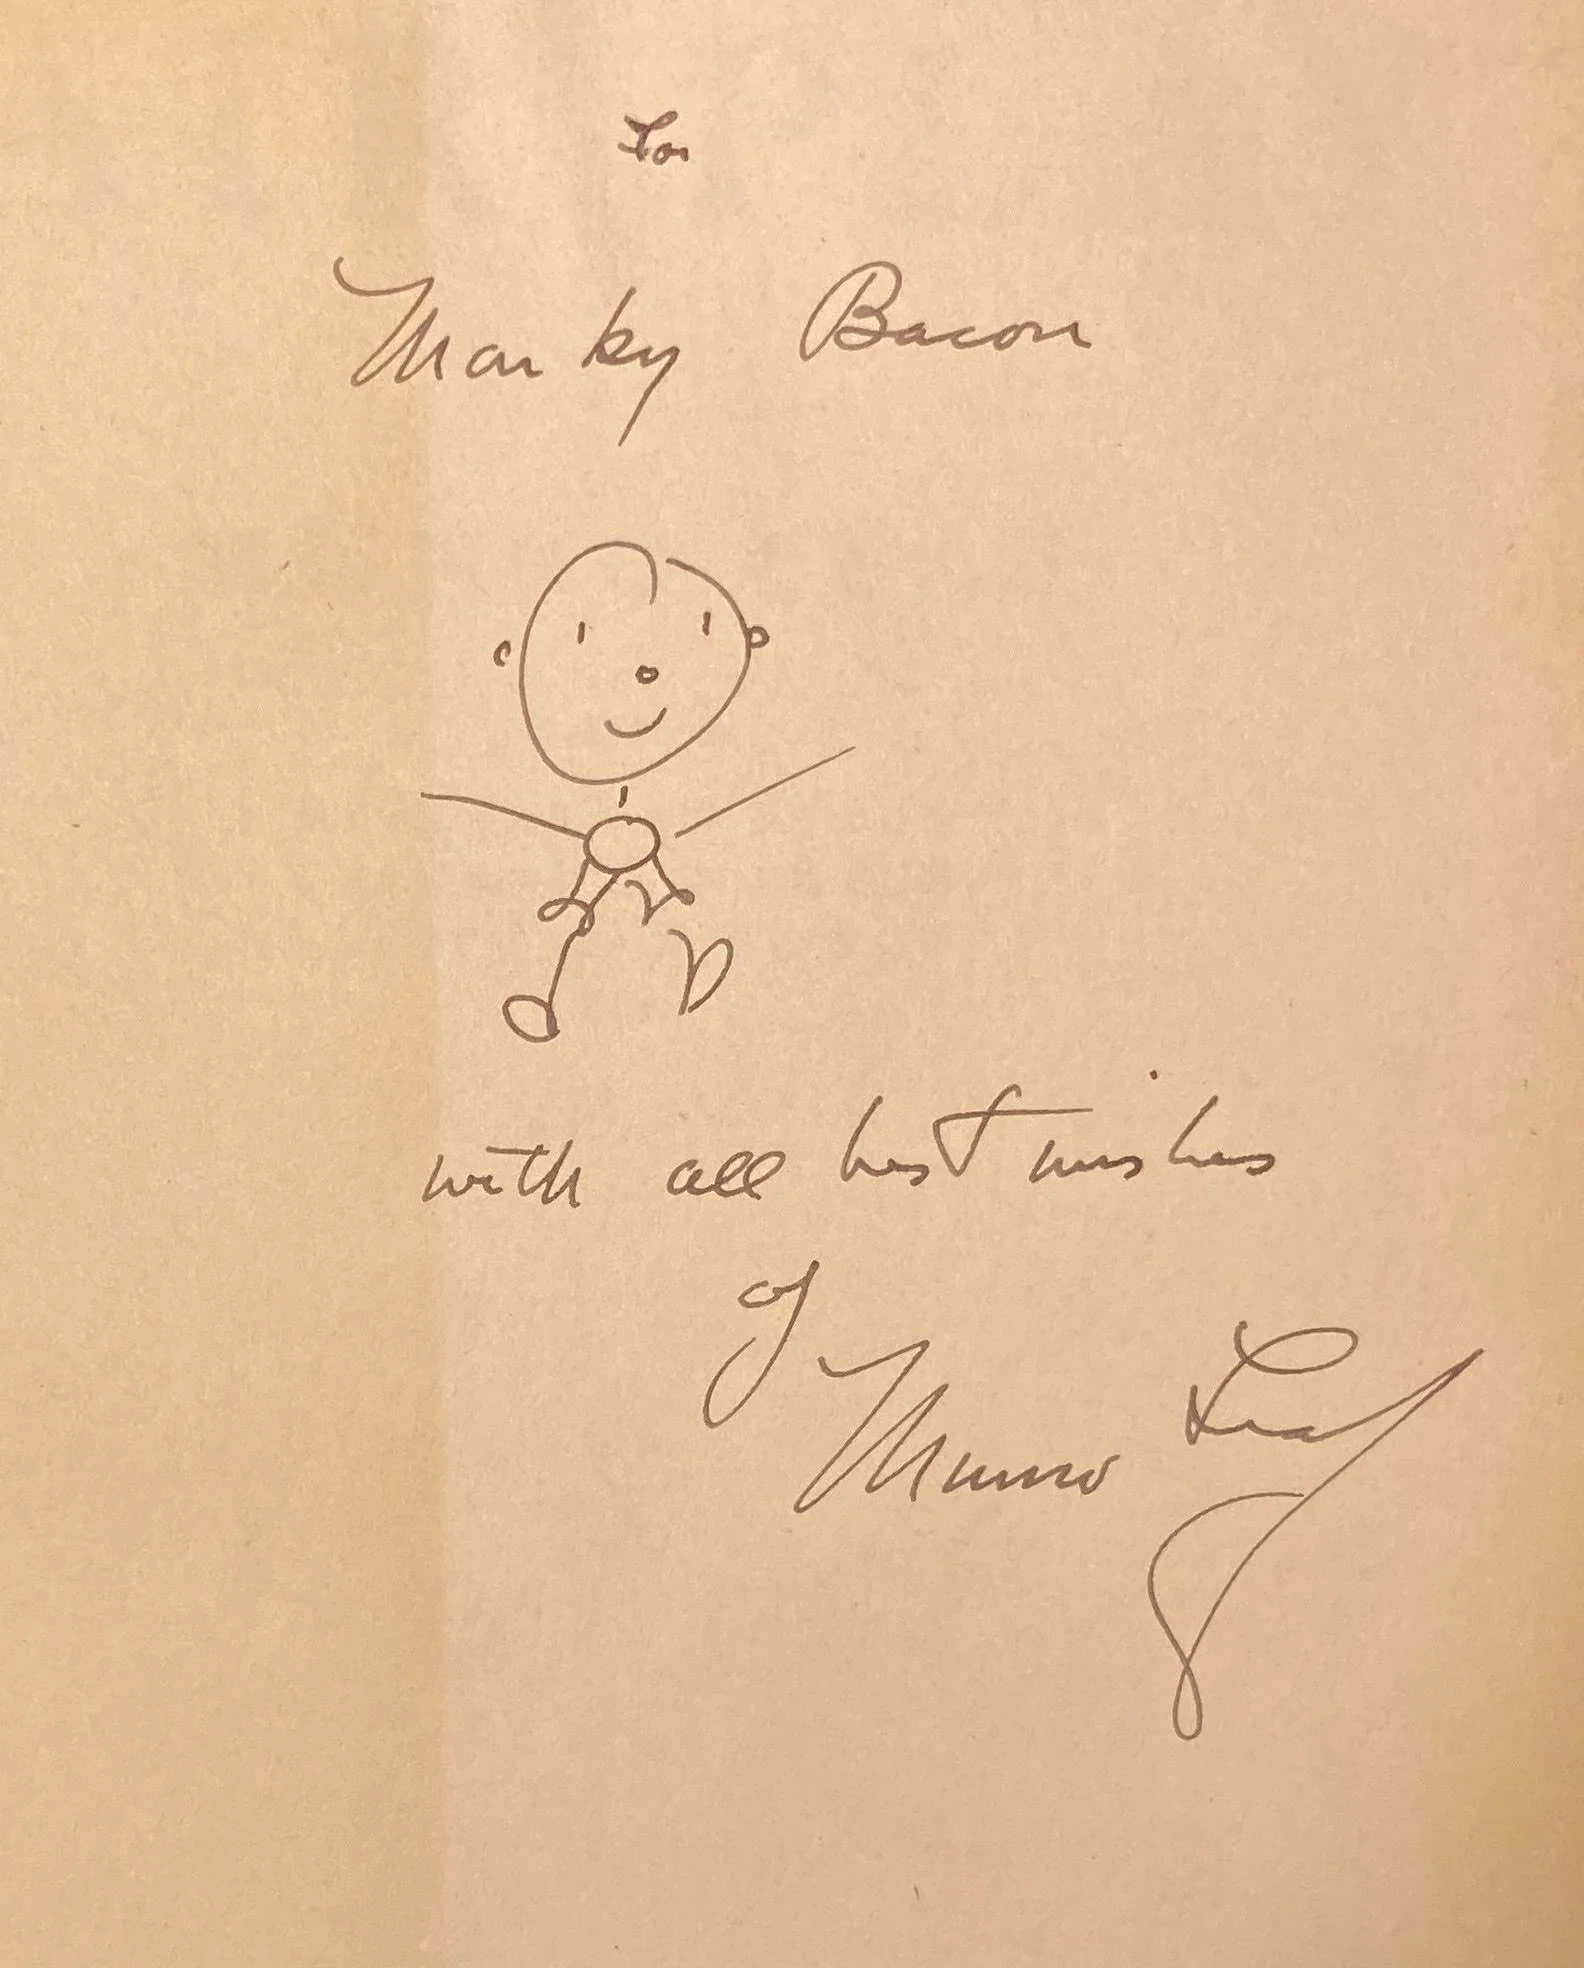 For
Marky Bacon
with all best wishes
of
Munro Leaf